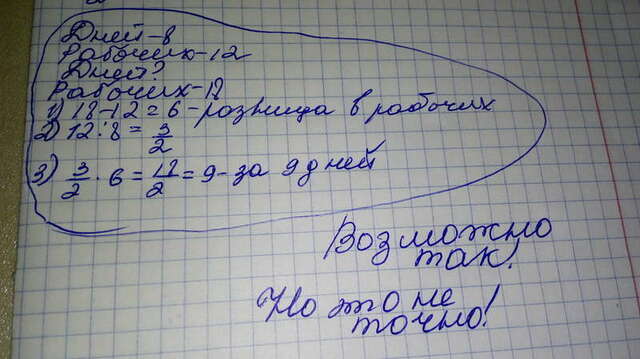 Дней - 8
Рабочих - 12
Дней?
рабочих - 18
1) 18-12=6 - розница в рабочих
2) 12:8=3/2
3) 3/2 6 = 18/2 = 9 - за 9 дней
Возможно
так,
Но это не
точно!